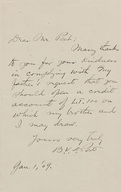 Dear Mr. Park:
Many thanks
to you for your kindness
in complying with my
father's request that you
should open a credit
account of L5.100 on
which my brother and
I may draw.
Yours very truly,
Jan. 1, '09.